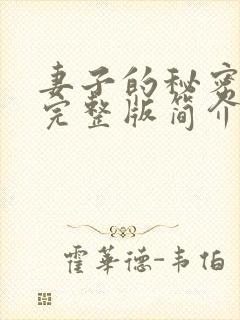 妻子的秘密
完整版简介
霍华德-韦伯